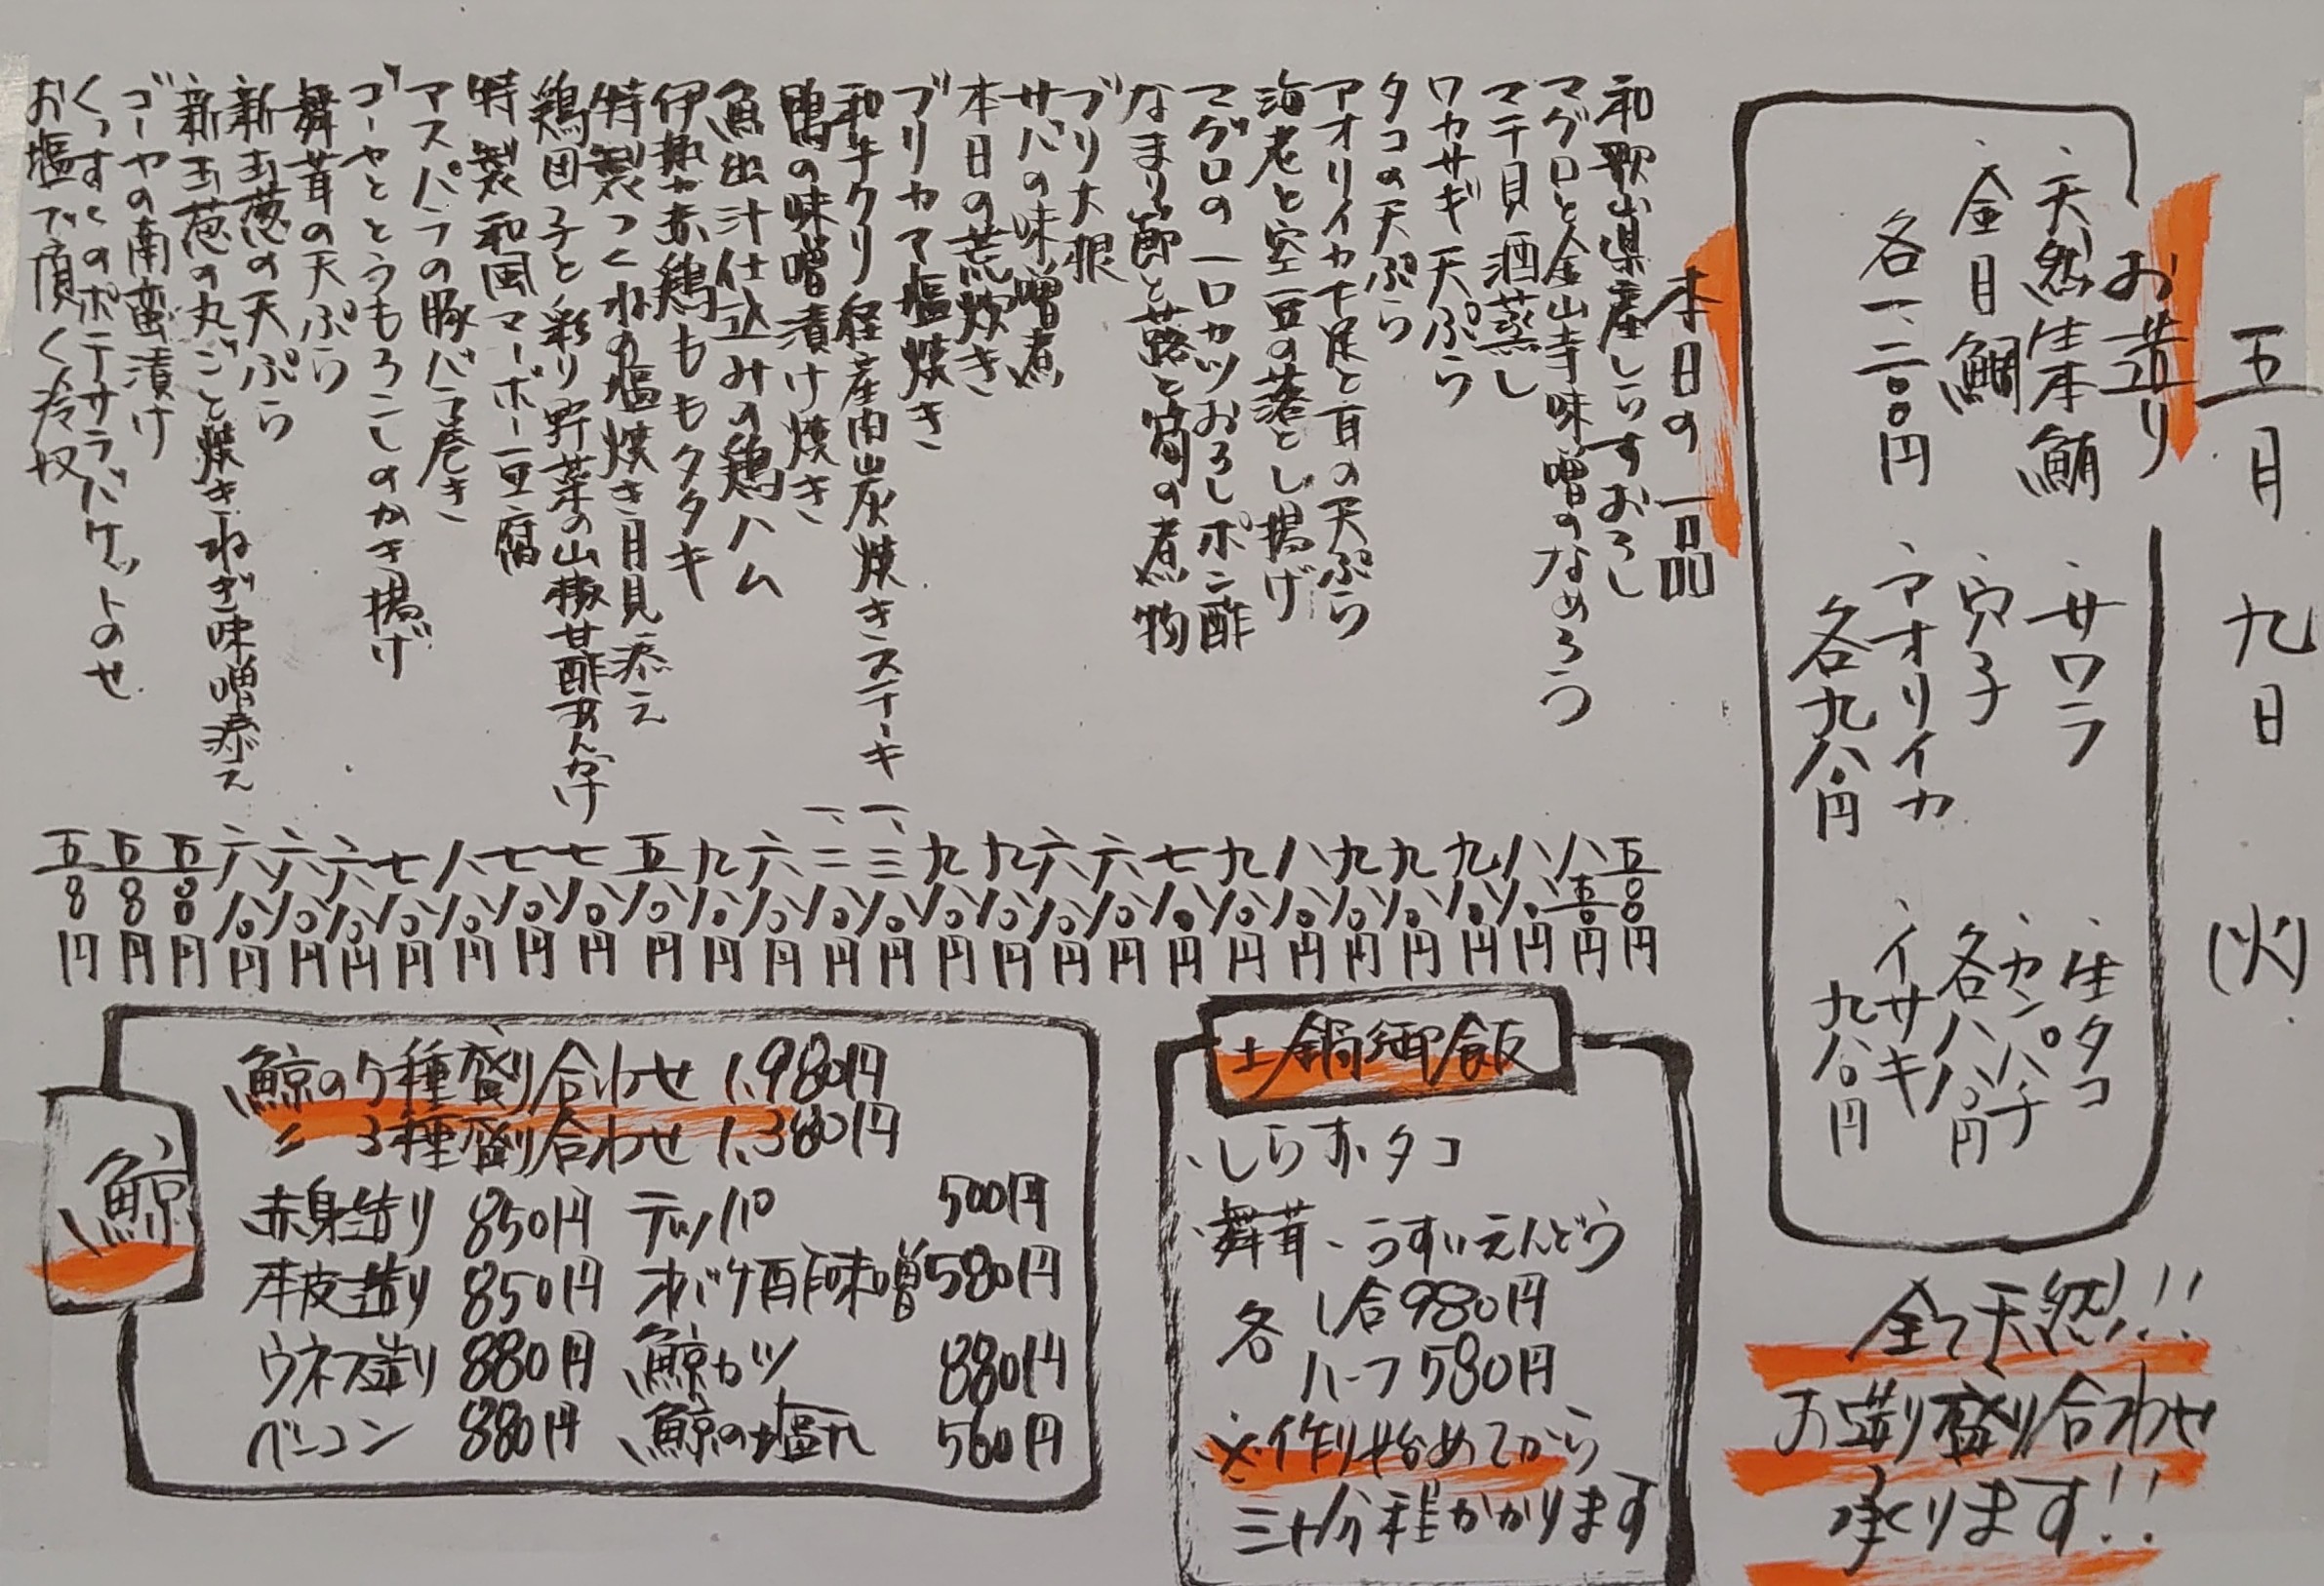 五月九日(火)
お造り
・天然生本鮪
・金目鯛
各一、二〇〇円
・サワラ
・穴子
・アオリイカ
各九八〇円
・生タコ
・カンパチ
各八八〇円
・イサキ
九八〇円
全て天然!!
お造り盛り合わせ
承ります!!
本日の一品
和歌山県産しらすおろし 五〇〇円
マグロと金山寺味噌のなめろう 八五〇円
マテ貝酒蒸し 八八〇円
ワカサギ天ぷら 九八〇円
タコの天ぷら 九八〇円
アオリイカ下足と耳の天ぷら 九八〇円
海老と空豆の落とし揚げ 八八〇円
マグロの一口カツおろしポン酢 九八〇円
なまり節と蕗と筍の煮物 七八〇円
ブリ大根 六八〇円
サバの味噌煮 六八〇円
本日の荒炊き 九八〇円
ブリカマ塩焼き 九八〇円
和牛クリ経産肉炭焼きステーキ 一、三八〇円
鴨の味噌漬け焼き 一、二八〇円
魚出汁仕込みの鶏ハム 六八〇円
伊勢赤鶏ももタタキ 九八〇円
特製つくねの塩焼き月見添え 五八〇円
鶏団子と彩り野菜の山椒甘酢あんかけ 七八〇円
特製和風マーボー豆腐 七八〇円
アスパラの豚バラ巻き 八八〇円
ゴーヤととうもろこしのかき揚げ 七八〇円
舞茸の天ぷら 六八〇円
新玉葱の天ぷら 六八〇円
新玉葱の丸ごと焼きねぎ味噌添え 六八〇円
ゴーヤの南蛮漬け 五〇〇円
くっすくのポテサラバケットのせ 五〇〇円
お塩で頂く冷奴 五〇〇円
土鍋御飯
・しらす・タコ
・舞茸・うすいえんどう
各 1合980円
ハーフ580円
※作り始めてから
三十分程かかります
鯨
鯨の5種盛り合わせ 1,980円
〃 3種盛り合わせ 1,380円
赤身造り 850円 テッパ 500円
本皮造り 850円 オバケ酢味噌 580円
ウネス造り 880円 鯨カツ 880円
ベーコン 880円 鯨の塩丸 560円